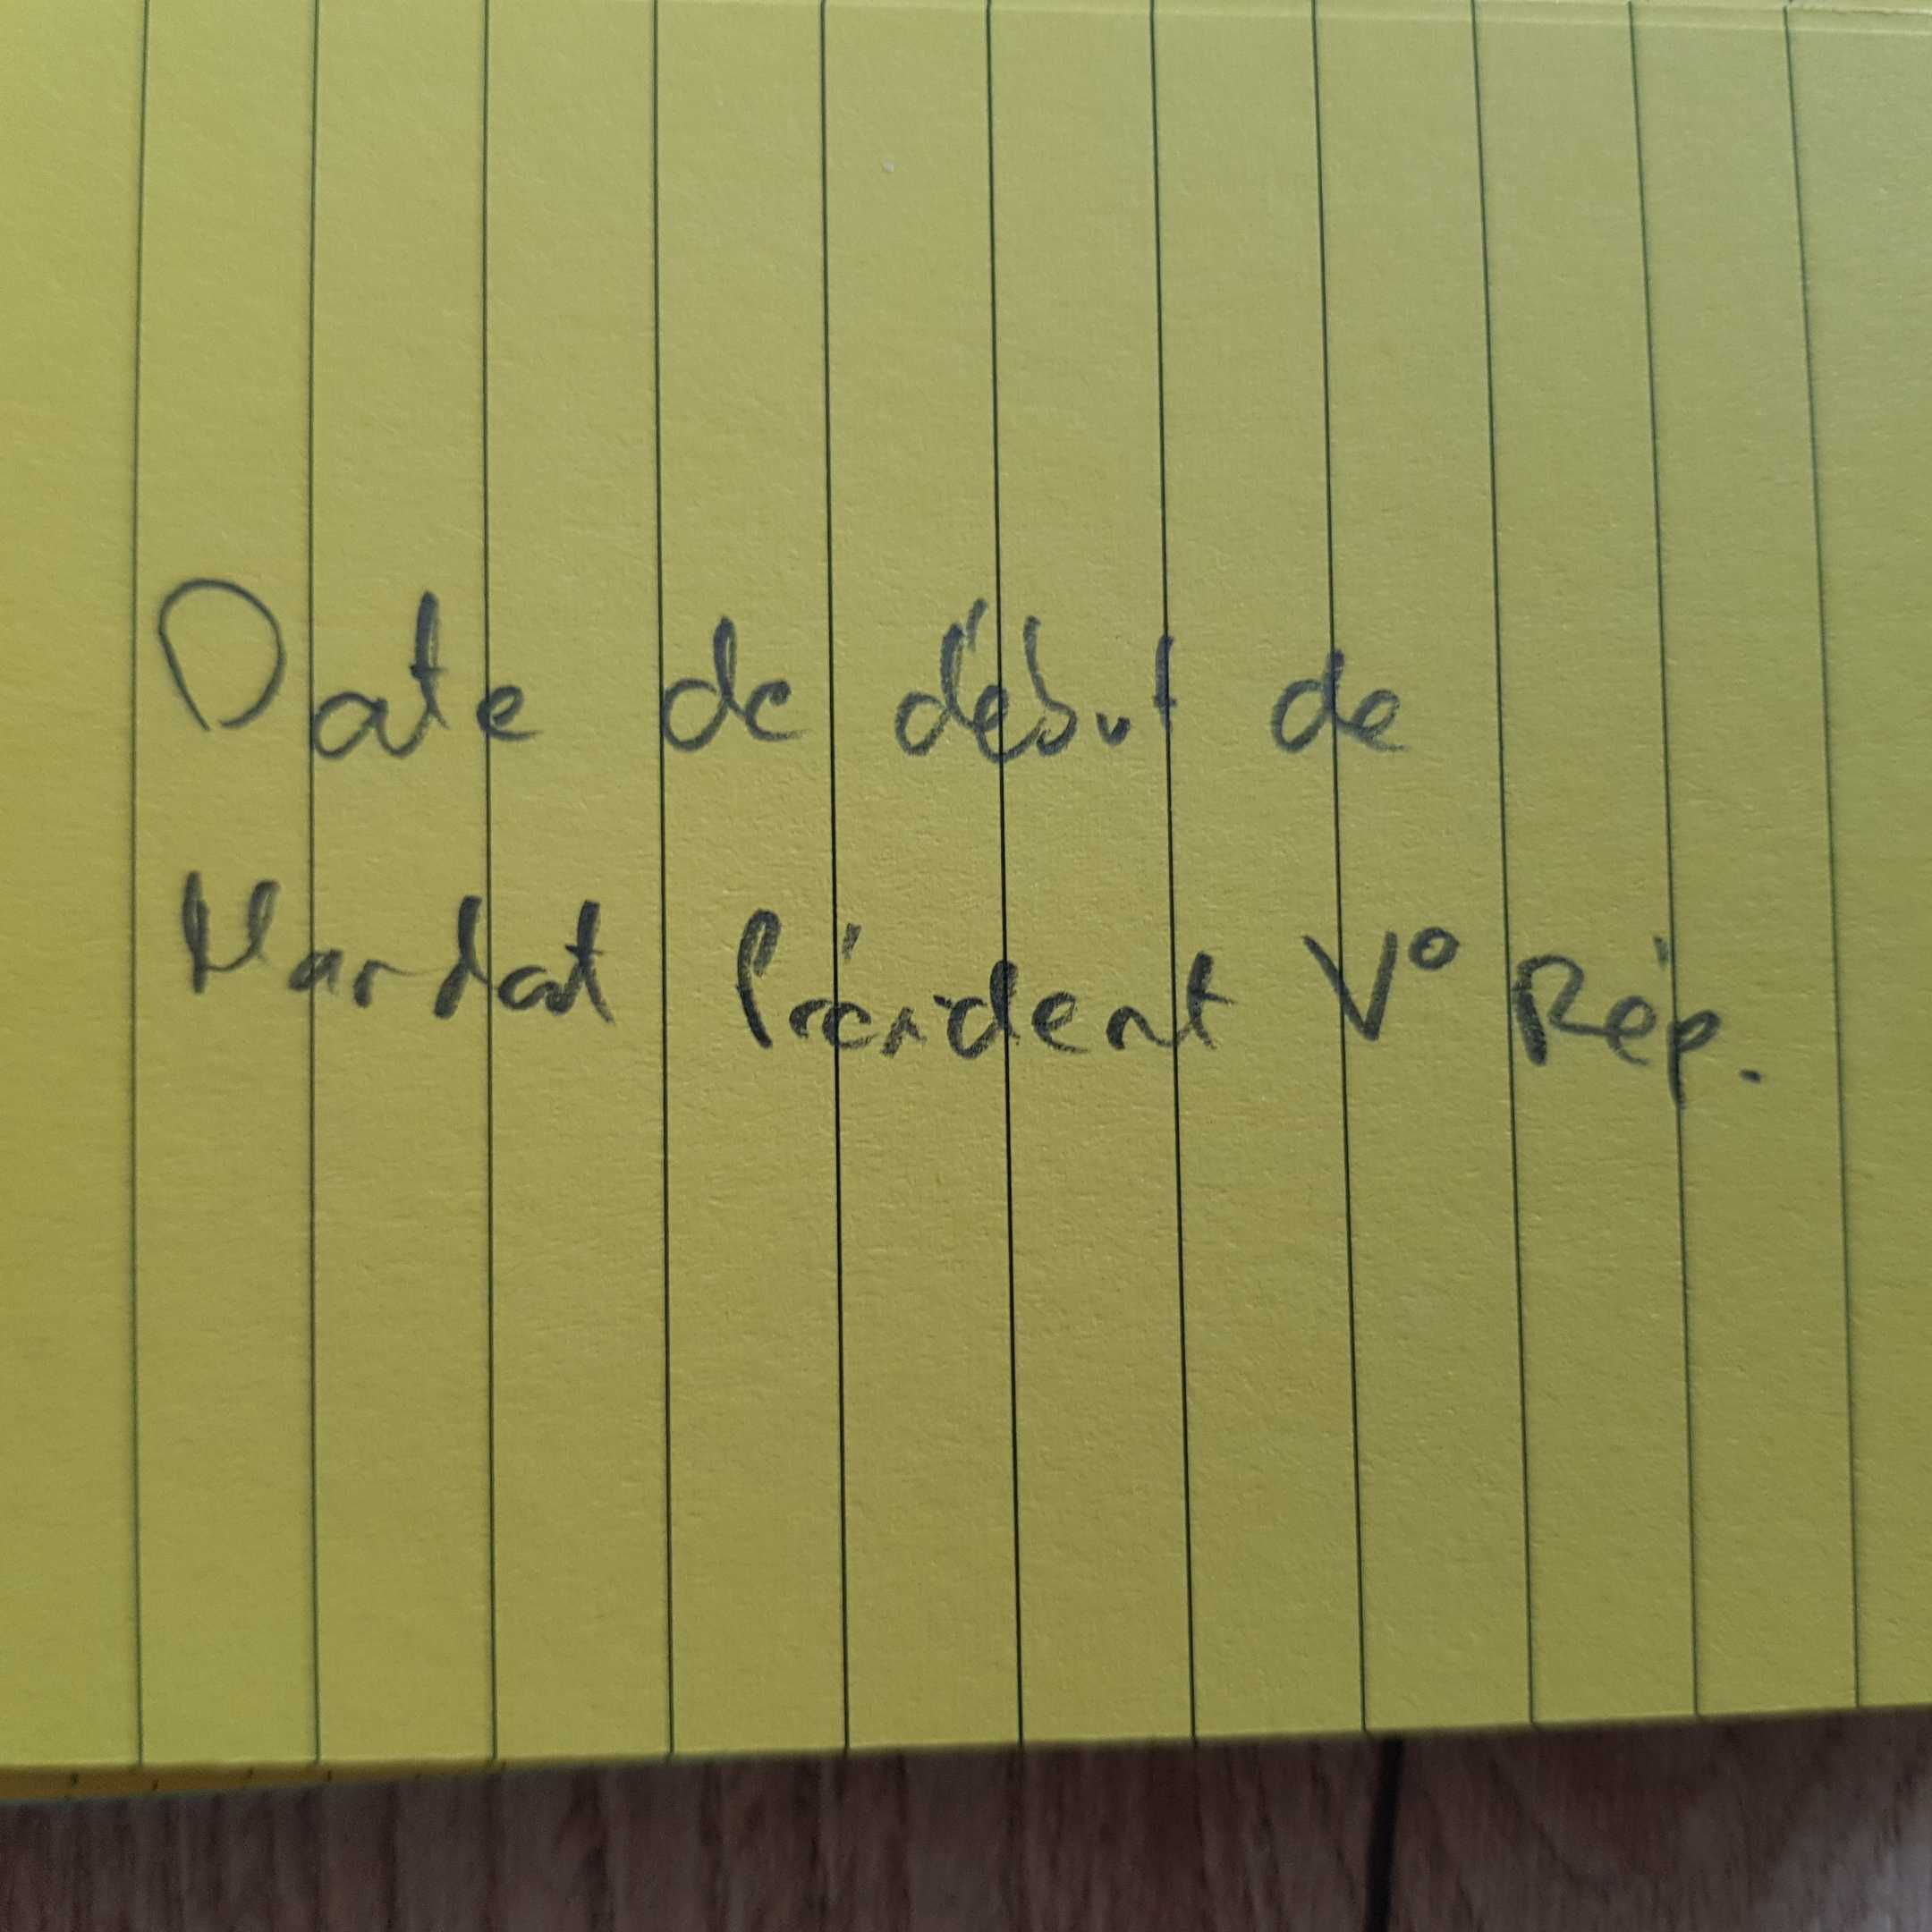 Date de début de
Mandat Président V° Rép.